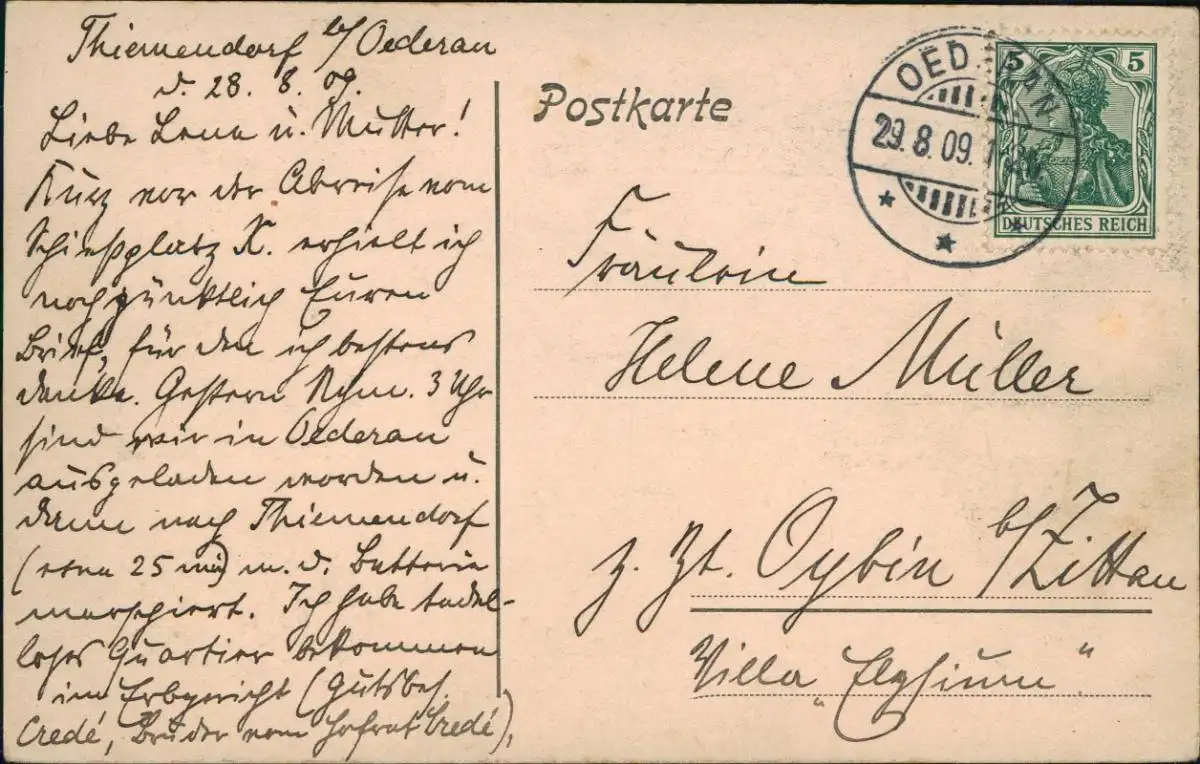 Thiemendorf b/Oederan
d. 28. 8. 09.
Liebe Lena u. Mutter!
Kurz vor der Abreise vom
Schießplatz K. erhielt ich
noch pünktlich Euren
Brief, für den ich bestens
danke. Gestern Nchm. 3 Uhr
sind wir in Oederan
ausgeladen worden u.
dann nach Thiemendorf
(etwa 25 min) m. d. Batterie
marschiert. Ich habe tadel-
loses Quartier bekommen
im Erbgericht (Gutsbes.
Credé, Bruder vom Hofrat Credé),
Postkarte
OEDERAN
29.8.09.1
5 5
DEUTSCHES REICH
Fräulein
Helene Müller
z. Zt. Oybin b/Zittau
Villa „Elysium"